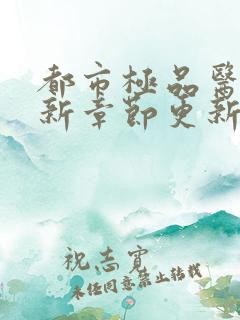 都市極品醫
新章節更新
祝志寶
未经同意禁止转载